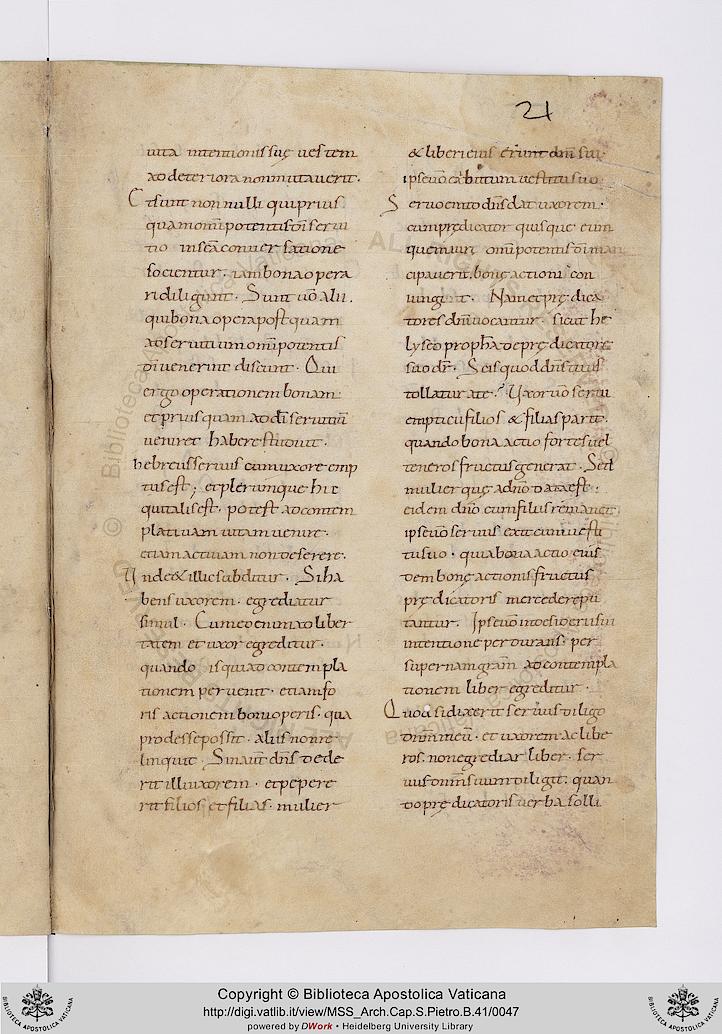 21
uita intentionis suę uestem
ad deteriora non mutauerit.
Et sunt non nulli qui prius
quam omnipotentis dī serui
tio in scā conuersatione
socientur. iam bona opera
ri diligunt. Sunt uō alii.
qui bona opera post quam
ad seruitium omnipotentis
dī uenerint discunt. Qui
ergo operationem bonam
et prius quam ad dī seruitiū
ueniret habere studuit.
hebreus seruus cum uxore emp
tus est; et plerunque hic
qui talis est. potest ad contem
platiuam uitam uenire.
etiam actiuam non deserere.
Unde & illic subditur. Si ha
bens uxorem. egrediatur
simul. Cum eo enim xo liber
tatem et uxor egreditur.
quando is qui ad contempla
tionem peruenit. etiam fo
ris actionem boni operis. qua
prodesse possit. aliis non re
linquit. Sin aut dn̄s dede
rit illi uxorem. et pepere
rit filios et filias. mulier
& liberi eius erunt dn̄i sui
ipse uō exibit cum uestitu suo
Seruo emto dn̄s dat uxorem.
cum prędicator quisque eum
quem iuri omnipotentis dī man
cipauerit. bonę actioni con
iungit. Nam et prędica
tores dn̄i uocantur. sicut he
lyseo propha de prędicatore
suo dr̄. Scis quod dn̄s tuus
tollatur a te? Uxor uō serui
empticii filios & filias parit.
quando bona actio fortes uel
teneros fructus generat. Sed
mulier quę a dn̄o data est.
eidem dn̄o cum filiis remanet.
ipse uō seruus exit cum uesti
tu suo. quia bona actio eius
dem bonę actionis fructus
prędicatoris mercede repu
tantur. Ipse uō in desiderii sui
intentione perdurans. per
supernam gram ad contempla
tionem liber egreditur.
Quod si dixerit seruus diligo
dn̄m meū. et uxorem ac libe
ros. non egrediar liber. ser
uus dn̄m suum diligit. quan
do prędicatoris uerba solli
Copyright © Biblioteca Apostolica Vaticana
http://digi.vatlib.it/view/MSS_Arch.Cap.S.Pietro.B.41/0047
powered by DWork • Heidelberg University Library